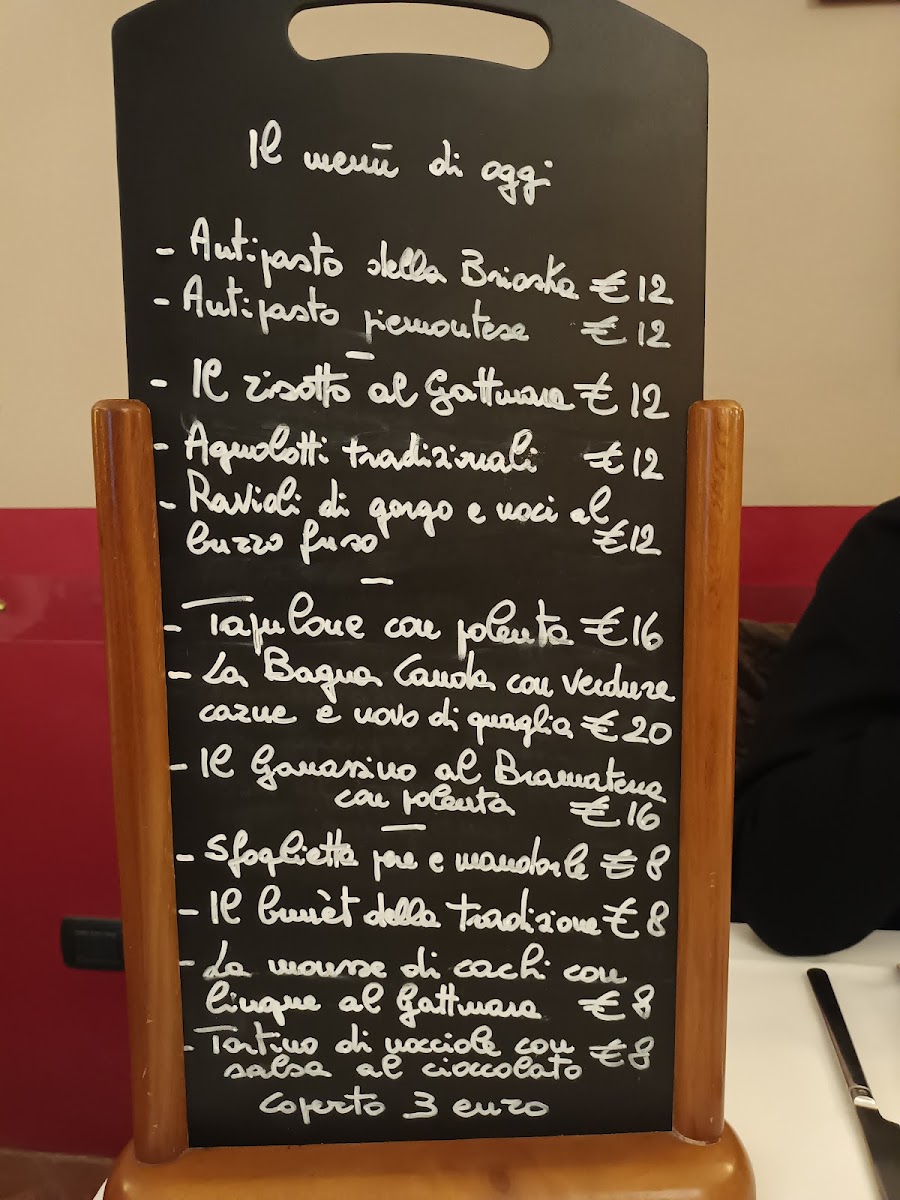 Il menū di oggi
- Antipasto della Brioska € 12
- Antipasto piemontese € 12
- Il risotto al Gattinara € 12
- Agnolotti tradizionali € 12
- Ravioli di gorgo e noci al
burro fuso € 12
- Tapulone con polenta € 16
- La Bagna Cauda con verdure
carne e uovo di quaglia € 20
- Il Ganassino al Bramaterra
con polenta € 16
- Sfoglietta pere e mandorle € 8
- Il bunèt della tradizione € 8
- La mousse di cachi con
lingue al Gattinara € 8
- Tortino di nocciole con € 8
salsa al cioccolato
Coperto 3 euro